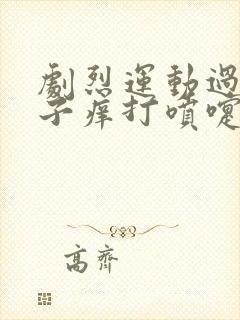 劇烈運動過
子痒打噴嚏
高齊